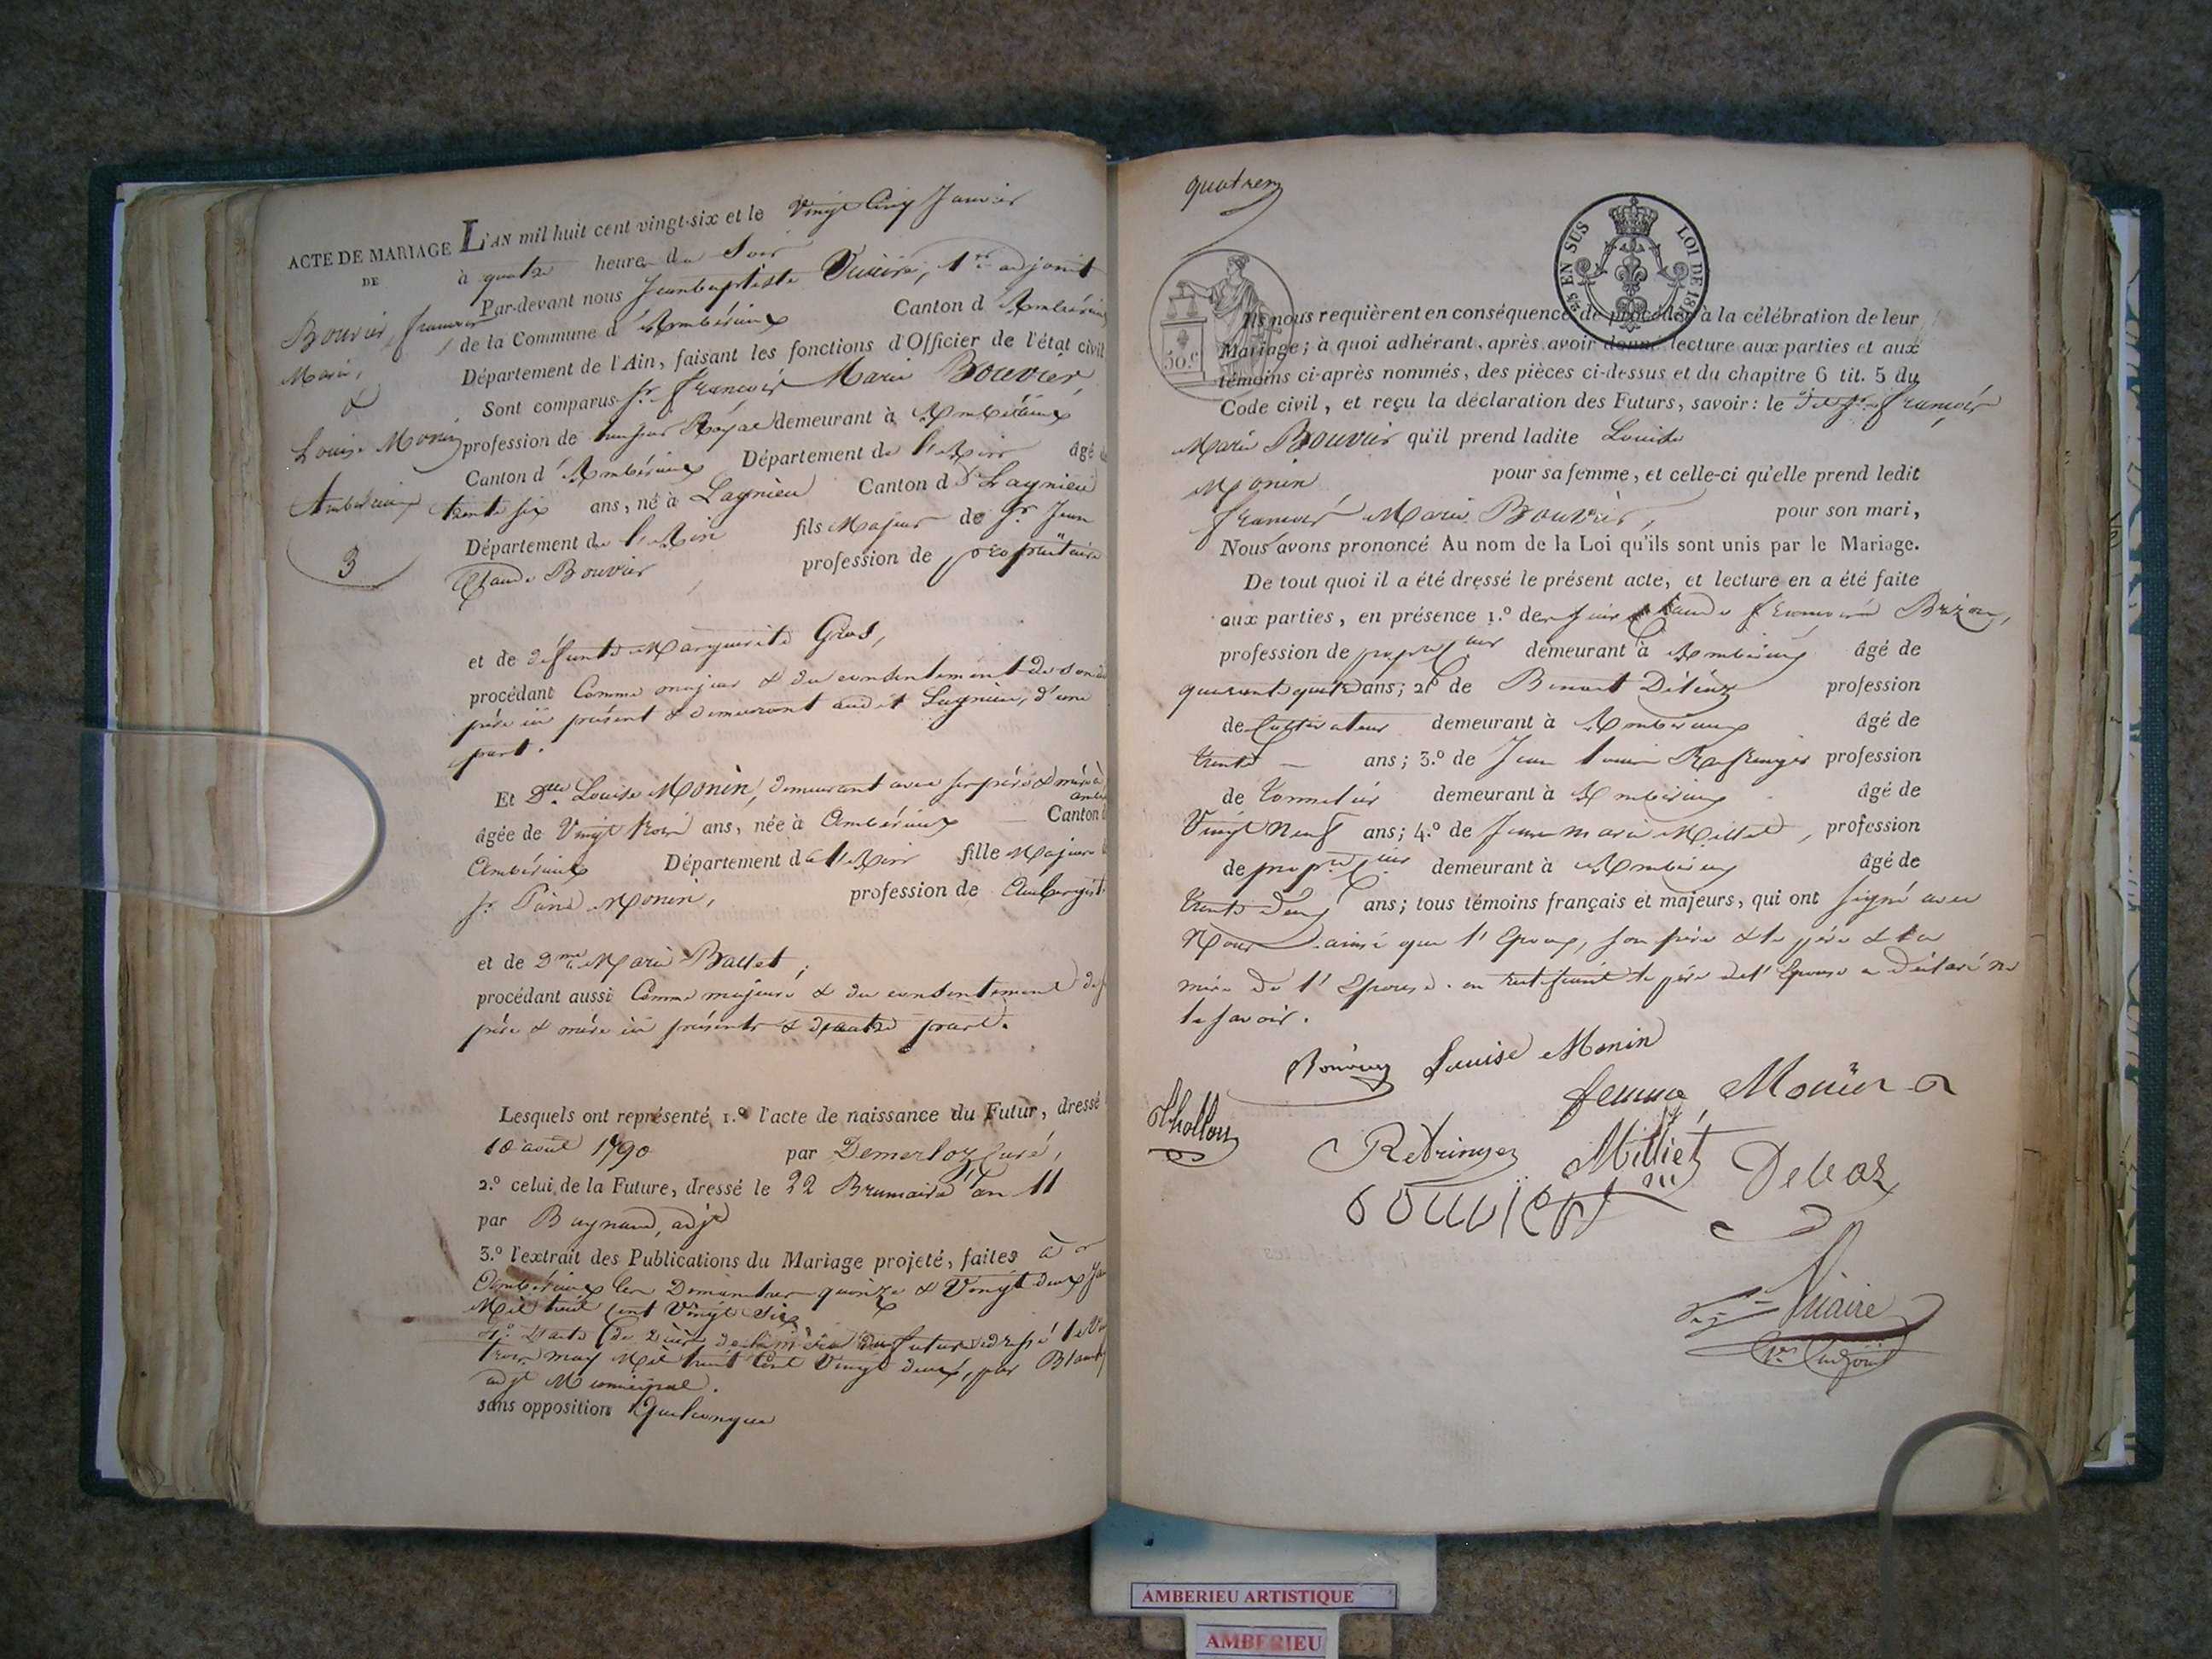 ACTE DE MARIAGE
DE
Bouvier, françois
Marie,
&
Louise Monin
Ambérieux
3
L'AN mil huit cent vingt-six et le Vingt Cinq Janvier
à quatre heure du Soir
Par-devant nous Jeanbaptiste 1er adjoint
de la Commune d'Ambérieux Canton d'Ambérieux
Département de l'Ain, faisant les fonctions d'Officier de l'état civil
Sont comparus Sr. françois Marie Bouvier,
profession de Royal demeurant à Ambérieux
Canton d'Ambérieux Département de l'Ain âgé de
trente six ans, né à Lagnieu Canton de Lagnieu
Département de l'Ain fils Majeur de Sr. Jean
Claude Bouvier, profession de propriétaire
et de défunte Marguerite Gros,
procédant Comme majeur & du consentement de son
père ici présent & demeurant audit Lagnieu, d'une
part.
Et Dlle Louise Monin, demeurant avec ses père & mère à
âgée de Vingt trois ans, née à Ambérieux Canton d
Ambérieux Département de l'Ain fille Majeure
Sr. Monin, profession de Aubergiste
et de Dme Marie Ballet,
procédant aussi Comme majeure & du consentement de
père & mère ici présents & d'autre part.
Lesquels ont représenté, 1.º l'acte de naissance du Futur, dressé
10 avril 1790 par Curé,
2.º celui de la Future, dressé le 22 Brumaire an 11
par adjt
3.º l'extrait des Publications du Mariage projeté, faites à
Ambérieux les Dimanches quinze & Vingt deux
Mil huit Cent Vingt Six
4º. L'acte de Décès de la mère du futur dressé le
trois may Mil huit Cent Vingt deux, par
adjt Municipal.
sans opposition Quelconque
50.C
5/15 EN SUS
LOI DE
Ils nous requièrent en conséquence de procéder à la célébration de leur
Mariage; à quoi adhérant, après avoir donné lecture aux parties et aux
témoins ci-après nommés, des pièces ci-dessus et du chapitre 6 tit. 5 du
Code civil, et reçu la déclaration des Futurs, savoir: le dit Sr. françois
Marie Bouvier qu'il prend ladite Louise
Monin pour sa femme, et celle-ci qu'elle prend ledit
françois Marie Bouvier, pour son mari,
Nous avons prononcé Au nom de la Loi qu'ils sont unis par le Mariage.
De tout quoi il a été dressé le présent acte, et lecture en a été faite
aux parties, en présence 1.º de Claude
profession de demeurant à Ambérieux âgé de
quarante quatre ans; 2.º de Benoit profession
de Cultivateur demeurant à Ambérieux âgé de
trente ans; 3.º de Jean Louis profession
de Tonnelier demeurant à Ambérieux âgé de
Vingt Neuf ans; 4.º de Jean marie Milliet, profession
de demeurant à Ambérieux âgé de
trente deux ans; tous témoins français et majeurs, qui ont signé avec
Nous ainsi que l'Epoux, son père & la
mère de l'Epouse. le père de l'Epouse a déclaré ne
le savoir.
Bouvier Louise Monin
femme Monin
Milliet
bouvier
1er adjoint
AMBERIEU ARTISTIQUE
AMBERIEU